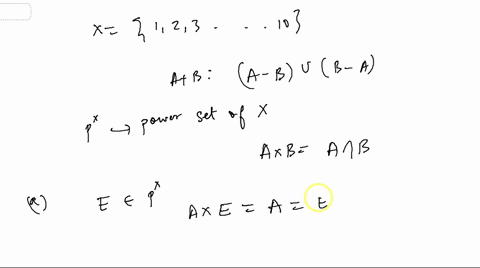 X = { 1, 2, 3 . . . . 10 }
A+B : (A - B) ∪ (B - A)
P^X → power set of X
A×B = A ∩ B
(a) E ∈ P^X A × E = A = E